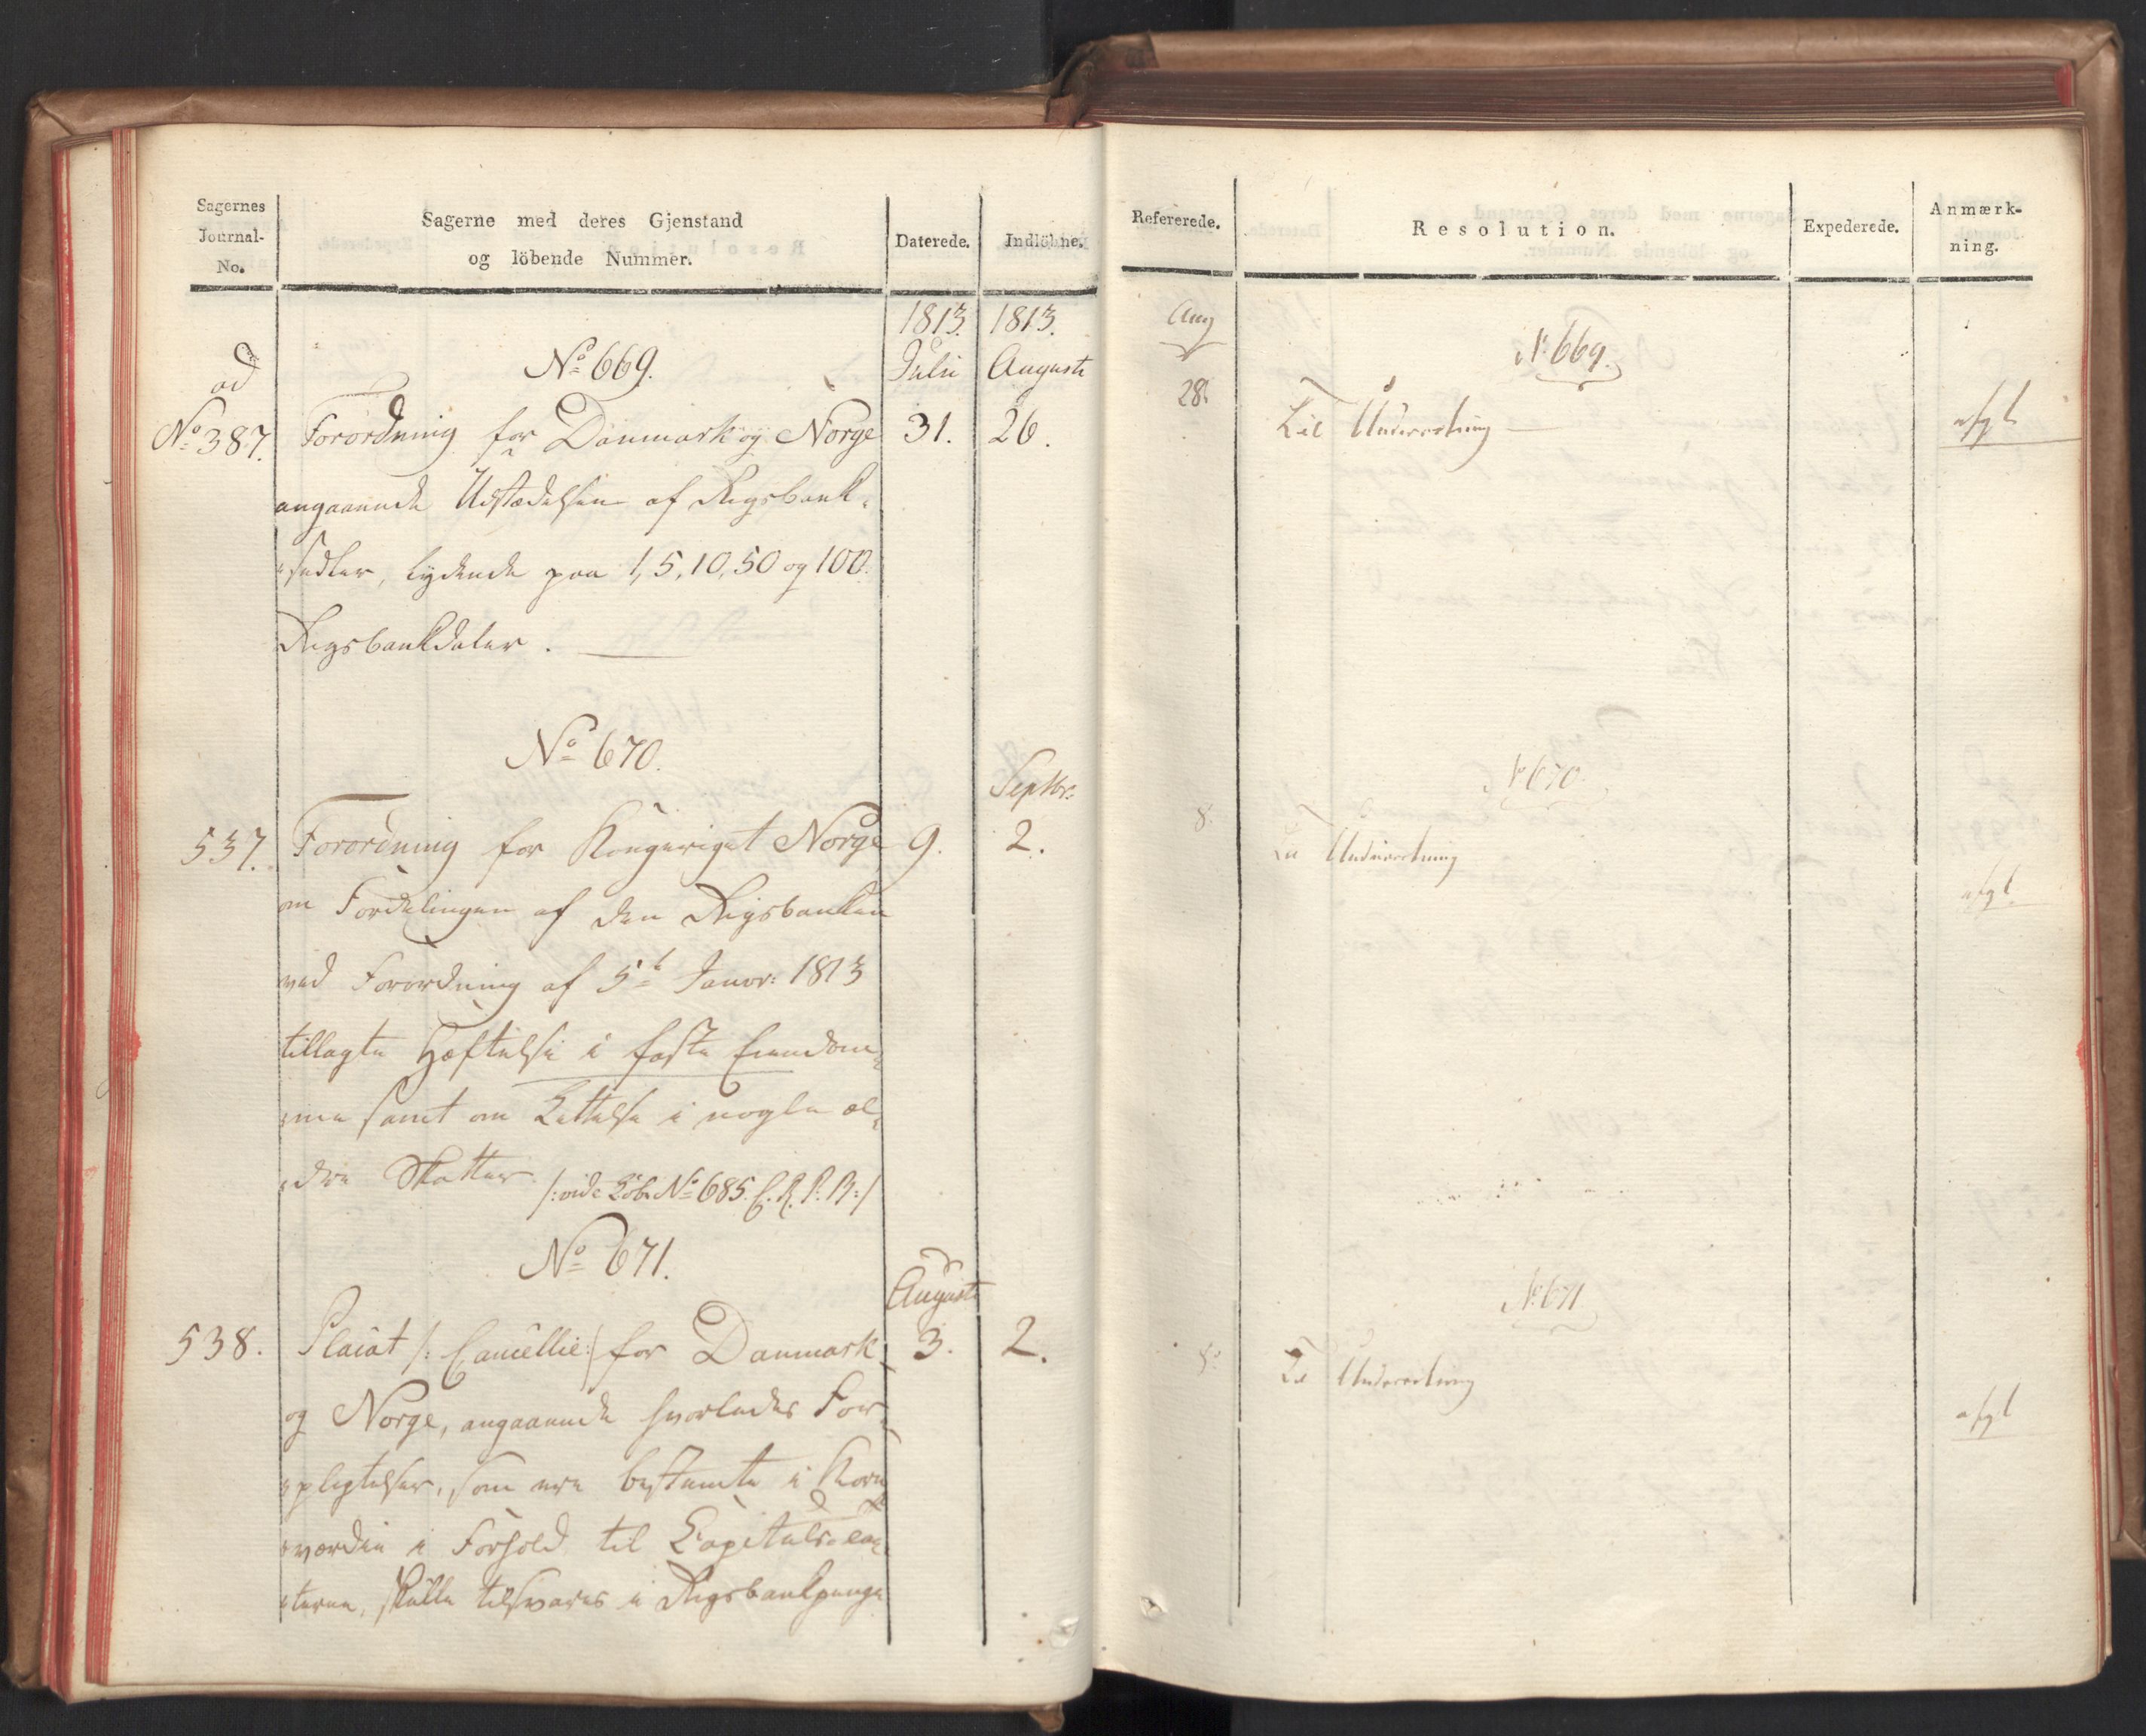 Sagernes
Journal-
No.
Sagerne med deres Gjenstand
og löbende Nummer.
Daterede.
Indlöbne.
1813. 1813.
No 669.
Julii Augusti
ad
No 387. Forordning for Danmark og Norge 31. 26.
angaaende Udstædelsen af Rigsbank-
sedler, lydende paa 1, 5, 10, 50 og 100
Rigsbankdaler.
No 670.
Septbr:
537. Forordning for Kongeriget Norge 9. 2.
om Fordelingen af den Rigsbanken
ved Forordning af 5t Janvr: 1813
tillagte Hæftelse i faste Eiendom-
me samt om Lettelse i nogle æl-
dre Skatter. /: vide Löb. No 685. C. R. P. B:/
No 671.
Augusti
538. Placat /: Cancellie:/ for Danmark 3. 2.
og Norge, angaaende hvorledes For-
pligtelser, som ere bestemte i Korn
værdie i Forhold til Capitels-tax-
terne, skulle tilsvares i Rigsbankpenge
Refererede.
Resolution.
Expederede.
Anmærk-
ning.
Aug
No 669.
28. Til Underretning afgl
No 670.
8. Til Underretning
afgl.
No 671
8. Til Underretning
afgl